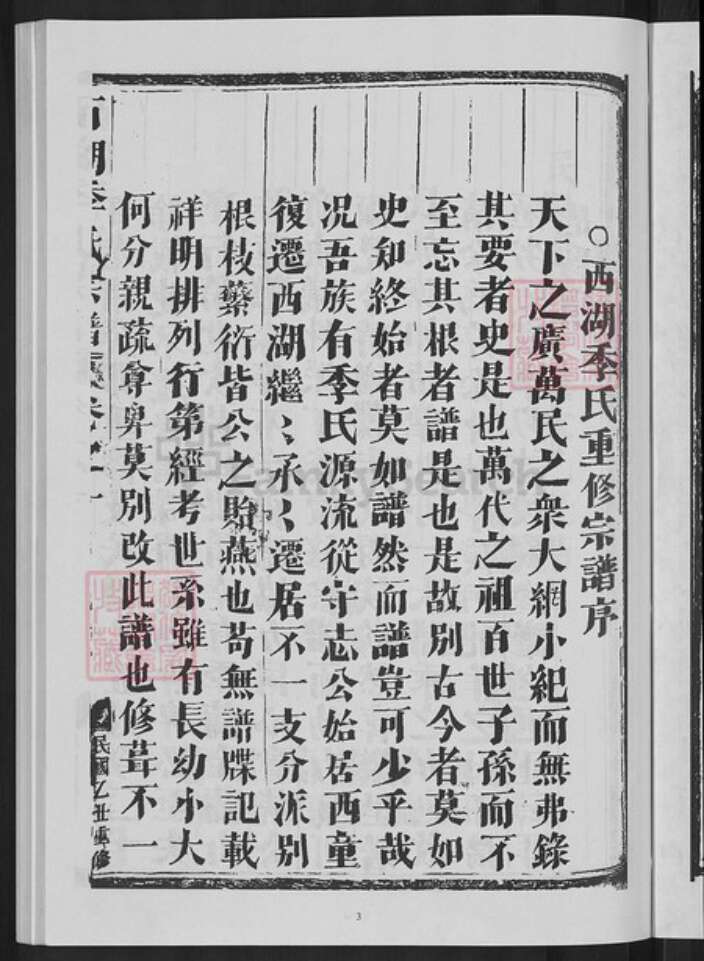 ○西湖季氏重修宗譜序
天下之廣萬民之衆大網小紀而無弗錄
其要者史是也萬代之祖百世子孫而不
至忘其根者譜是也是故別古今者莫如
史知終始者莫如譜然而譜豈可少乎哉
况吾族有季氏源流從守志公始居西童
復遷西湖繼〻承〻遷居不一支分派別
根枝蕃衍皆公之貽燕也苟無譜牒記載
祥明排列行第經考世系雖有長幼小大
何分親疏尊卑莫別改此譜也修葺不一
西湖季氏宗譜 卷之一
民國乙丑重修
3
FamilySearch